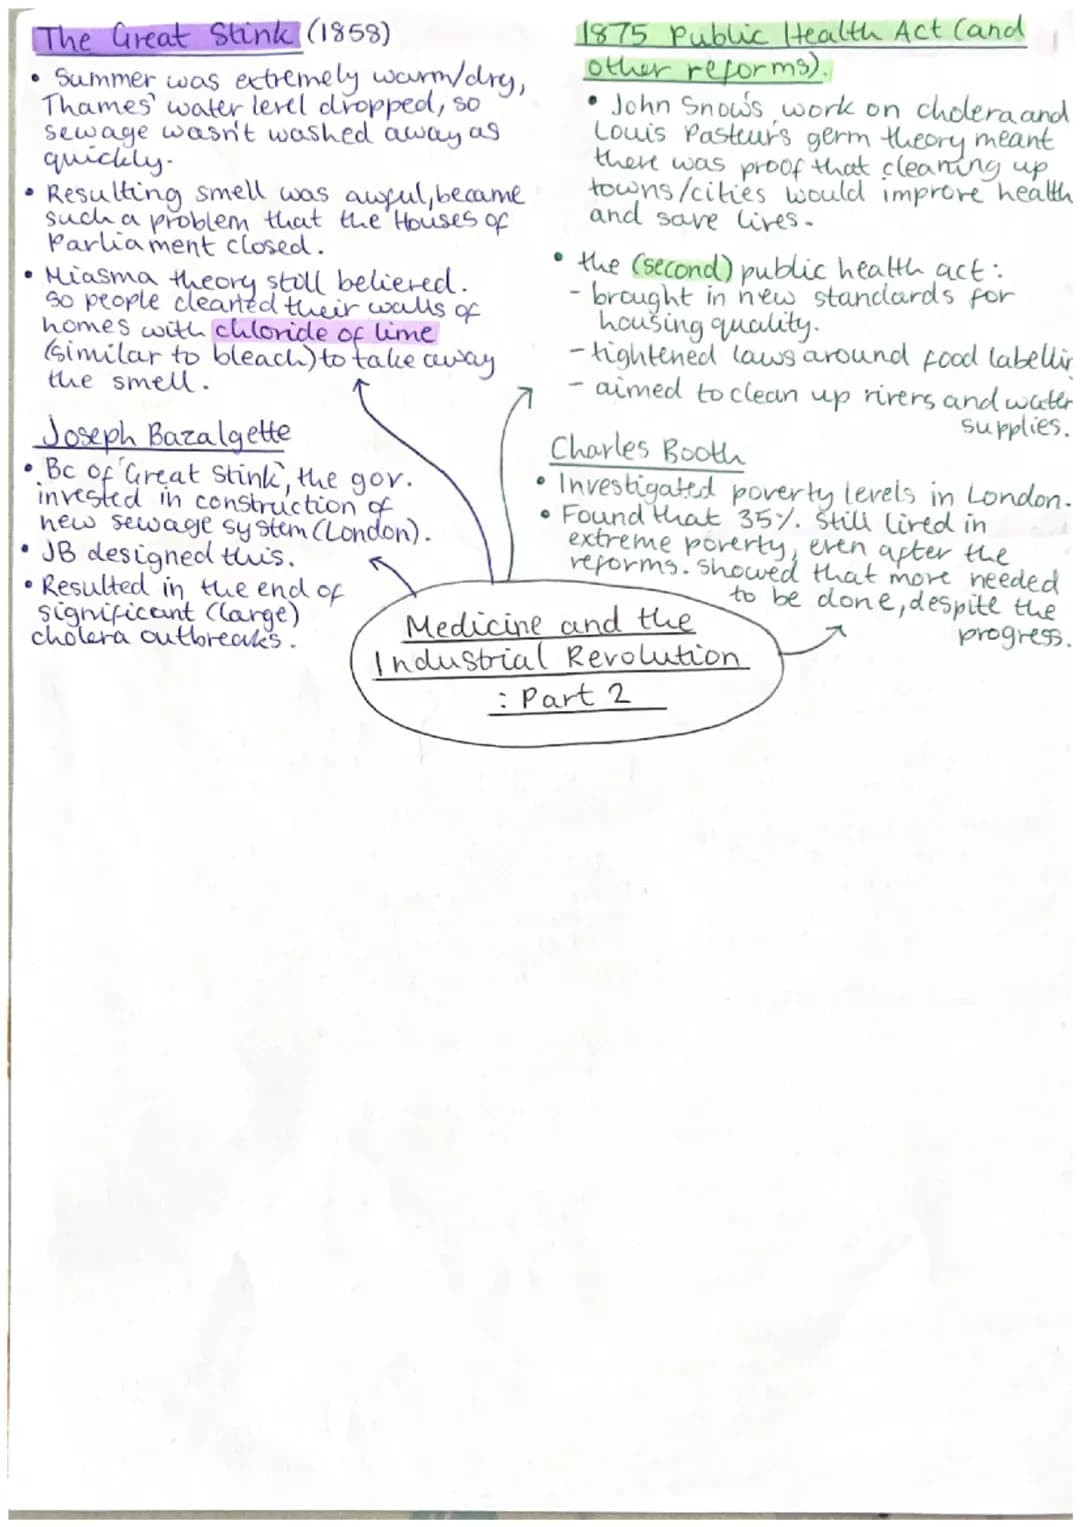 The Great Stink (1858)
• Summer was extremely warm/dry,
Thames' water level dropped, so
sewage wasn't washed away as
quickly.
• Resulting smell was awful, became
such a problem that the Houses of
Parliament closed.
• Miasma theory still believed.
So people cleaned their walls of
homes with chloride of lime
(similar to bleach) to take away
the smell.
Joseph Bazalgette
• Bc of 'Great Stink', the gov.
invested in construction of
new sewage system (London).
• JB designed this.
• Resulted in the end of
significant (large)
cholera outbreaks.
1875 Public Health Act (and
other reforms).
• John Snow's work on cholera and
Louis Pasteur's germ theory meant
there was proof that cleaning up
towns/cities would improve health
and save lives.
• the (second) public health act:
- brought in new standards for
housing quality.
- tightened laws around food labellin
- aimed to clean up rivers and water
supplies.
Charles Booth
• Investigated poverty levels in London.
• Found that 35% still lived in
extreme poverty, even after the
reforms. Showed that more needed
to be done, despite the
progress.
Medicine and the
Industrial Revolution
: Part 2